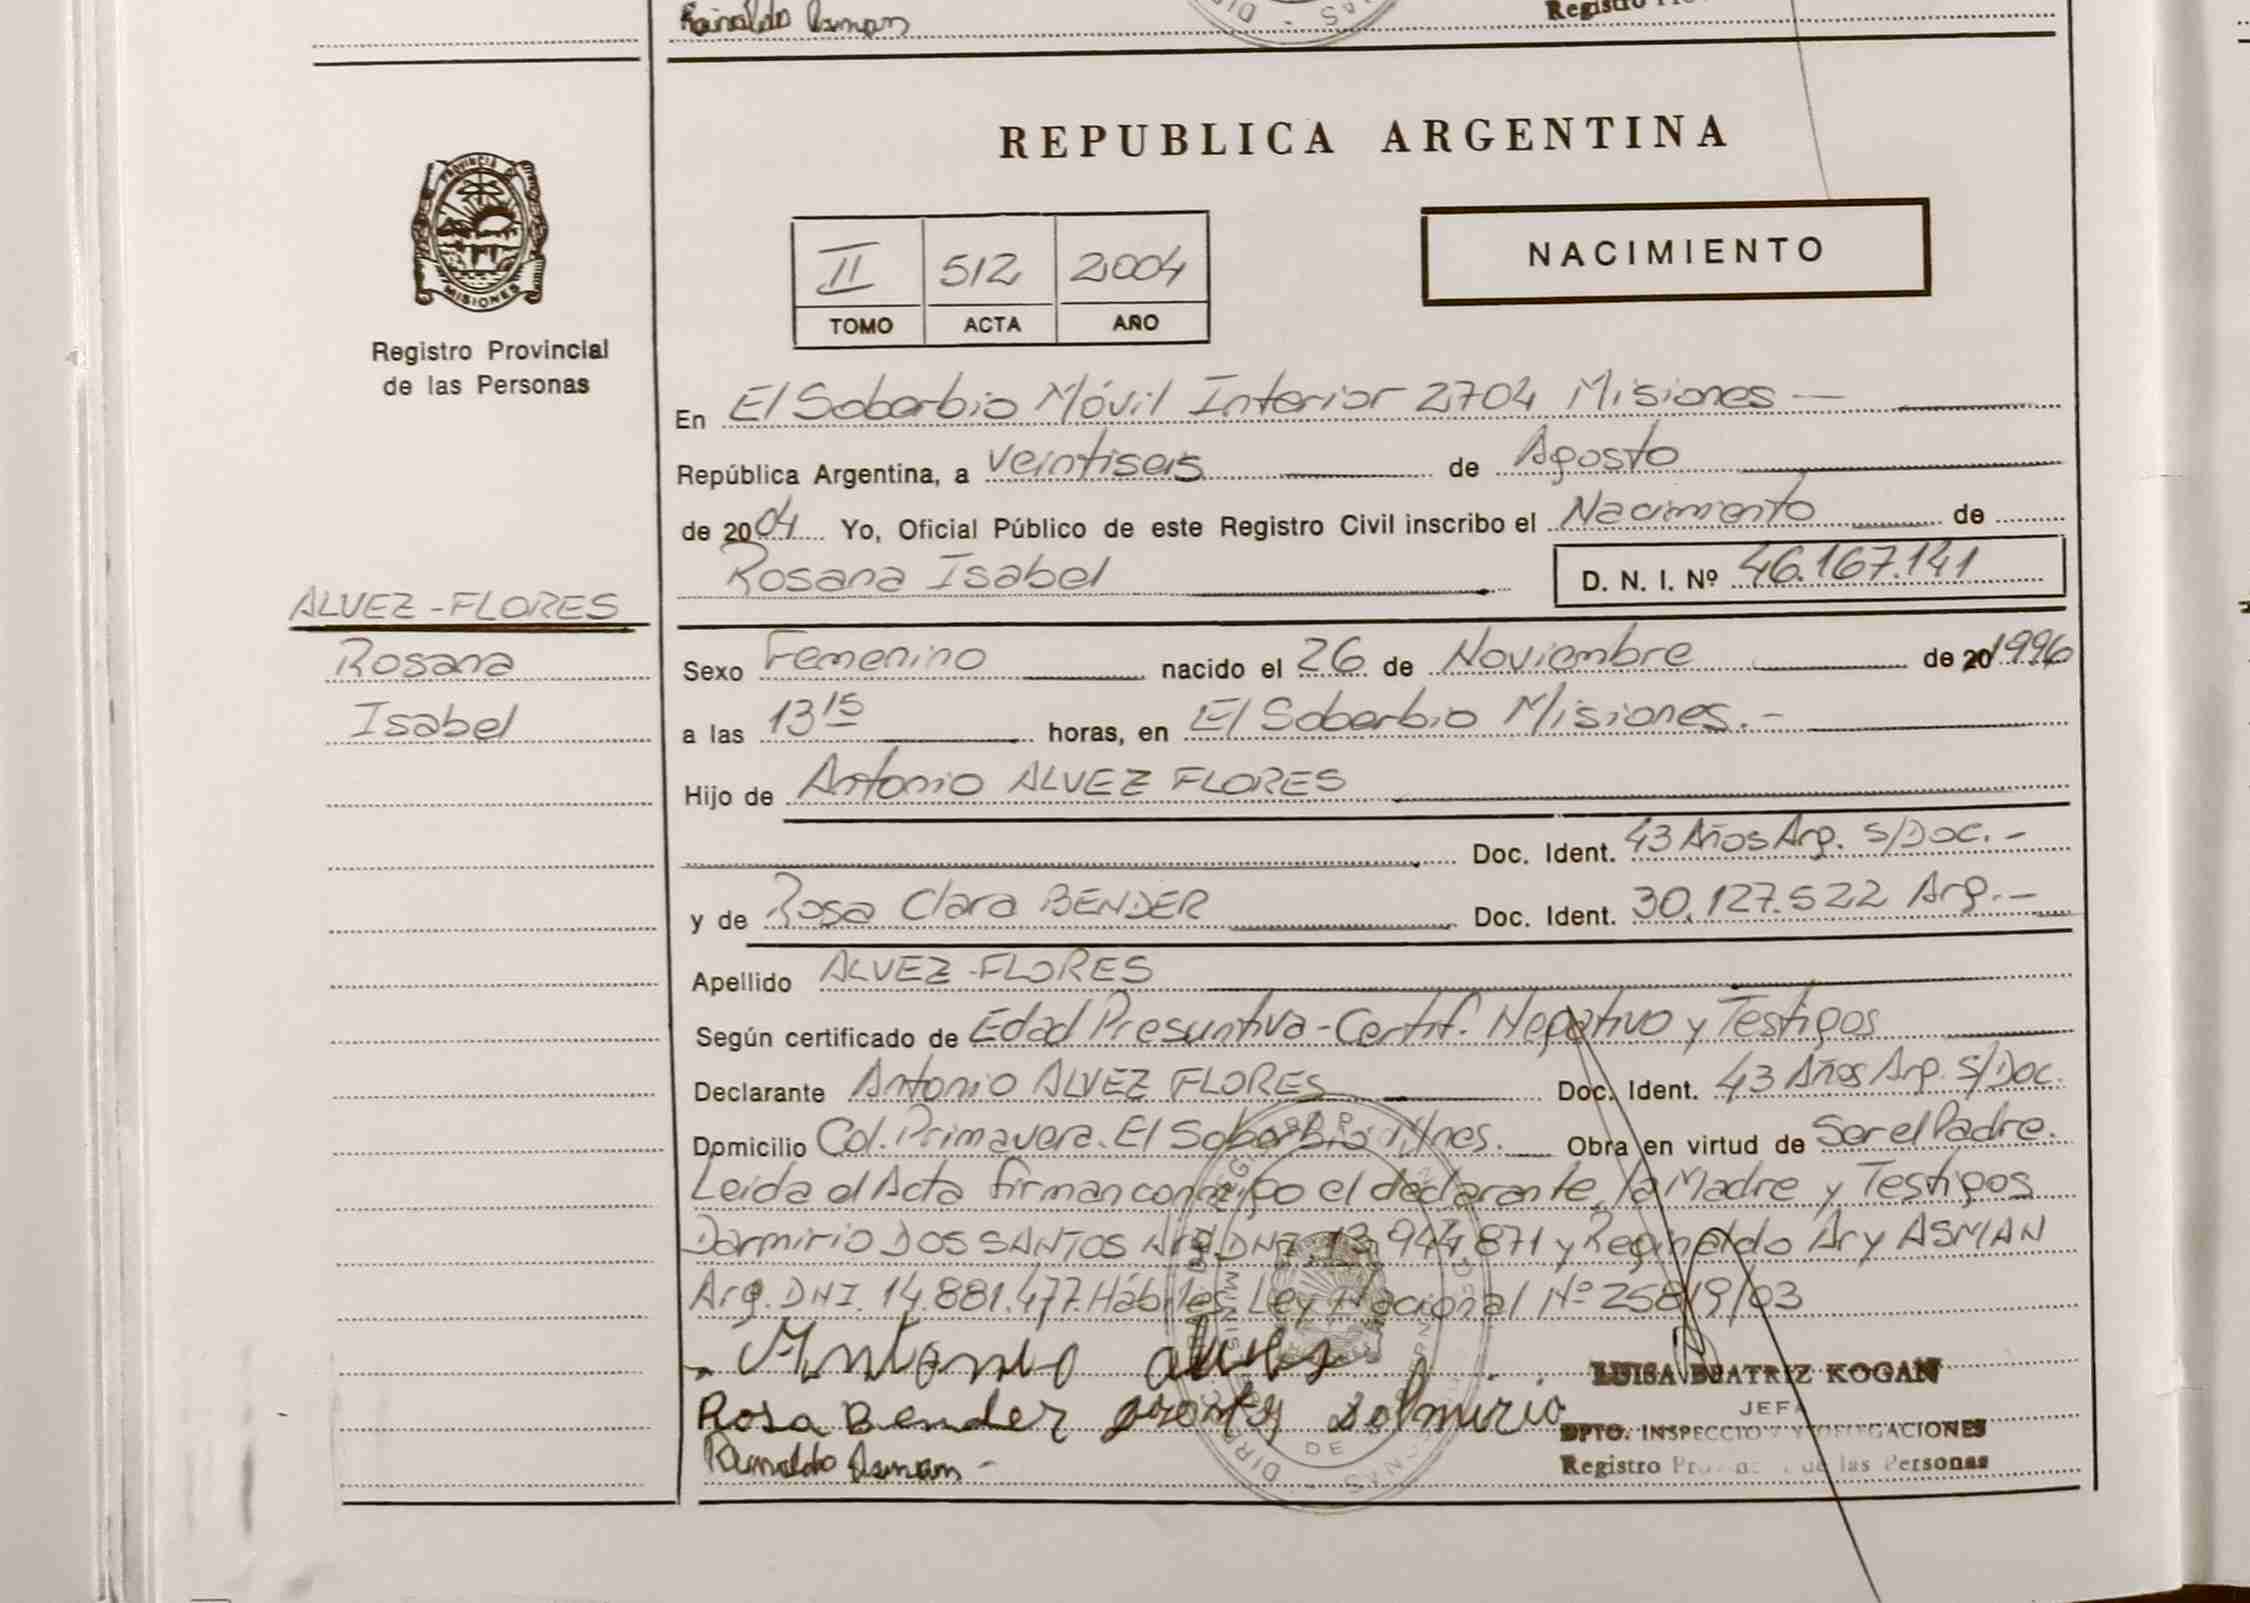 Reinaldo Asman
Registro
REPUBLICA ARGENTINA
PROVINCIA DE
MISIONES
Registro Provincial
de las Personas
II 512 2004
TOMO ACTA AÑO
NACIMIENTO
En El Soberbio Móvil Interior 2704 Misiones —
República Argentina, a veintiseis de Agosto
de 2004 Yo, Oficial Público de este Registro Civil inscribo el Nacimiento de
Rosana Isabel D. N. I. Nº 46.167.141
ALVEZ - FLORES
Rosana
Isabel
Sexo Femenino nacido el 26 de Noviembre de 20 1996
a las 13 15 horas, en El Soberbio Misiones.-
Hijo de Antonio ALVEZ FLORES
Doc. Ident. 43 Años Arg. S/Doc.-
y de Rosa Clara BENDER Doc. Ident. 30.127.522 Arg.-
Apellido ALVEZ-FLORES
Según certificado de Edad Presuntiva-Certif. Negativo y Testigos
Declarante Antonio ALVEZ FLORES Doc. Ident. 43 Años Arg. S/Doc.
Domicilio Col. Primavera. El Soberbio Mnes. Obra en virtud de Ser el Padre.
Leida el Acta firman conmigo el declarante, la Madre y Testigos
Darmirio DOS SANTOS Arg. DNI. 13.944.871 y Reginaldo Ary ASMAN
Arg. DNI. 14.881.477. Hábiles Ley Nacional Nº 25819/03
Antonio alves
Rosa Bender
LUISA BEATRIZ KOGAN
JEFA
DPTO. INSPECCION Y DELEGACIONES
Registro Provincial de las Personas